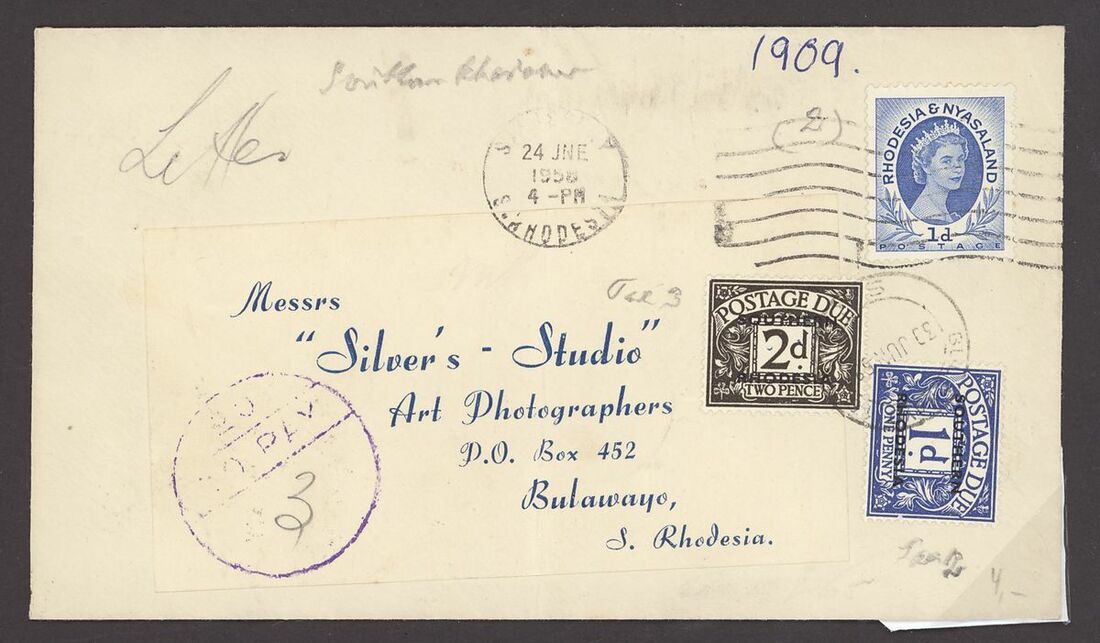 1909.
Letter
2
24 JNE
1958
4 - PM
S. RHODESIA
RHODESIA & NYASALAND
1d
POSTAGE
Tax 3
POSTAGE DUE
SOUTHERN
2d
RHODESIA
TWO PENCE
30 JUN
POSTAGE DUE
SOUTHERN
1d
RHODESIA
ONE PENNY
Messrs
"Silver's - Studio"
Art Photographers
P.O. Box 452
Bulawayo,
S. Rhodesia.
TO PAY
3
4,-